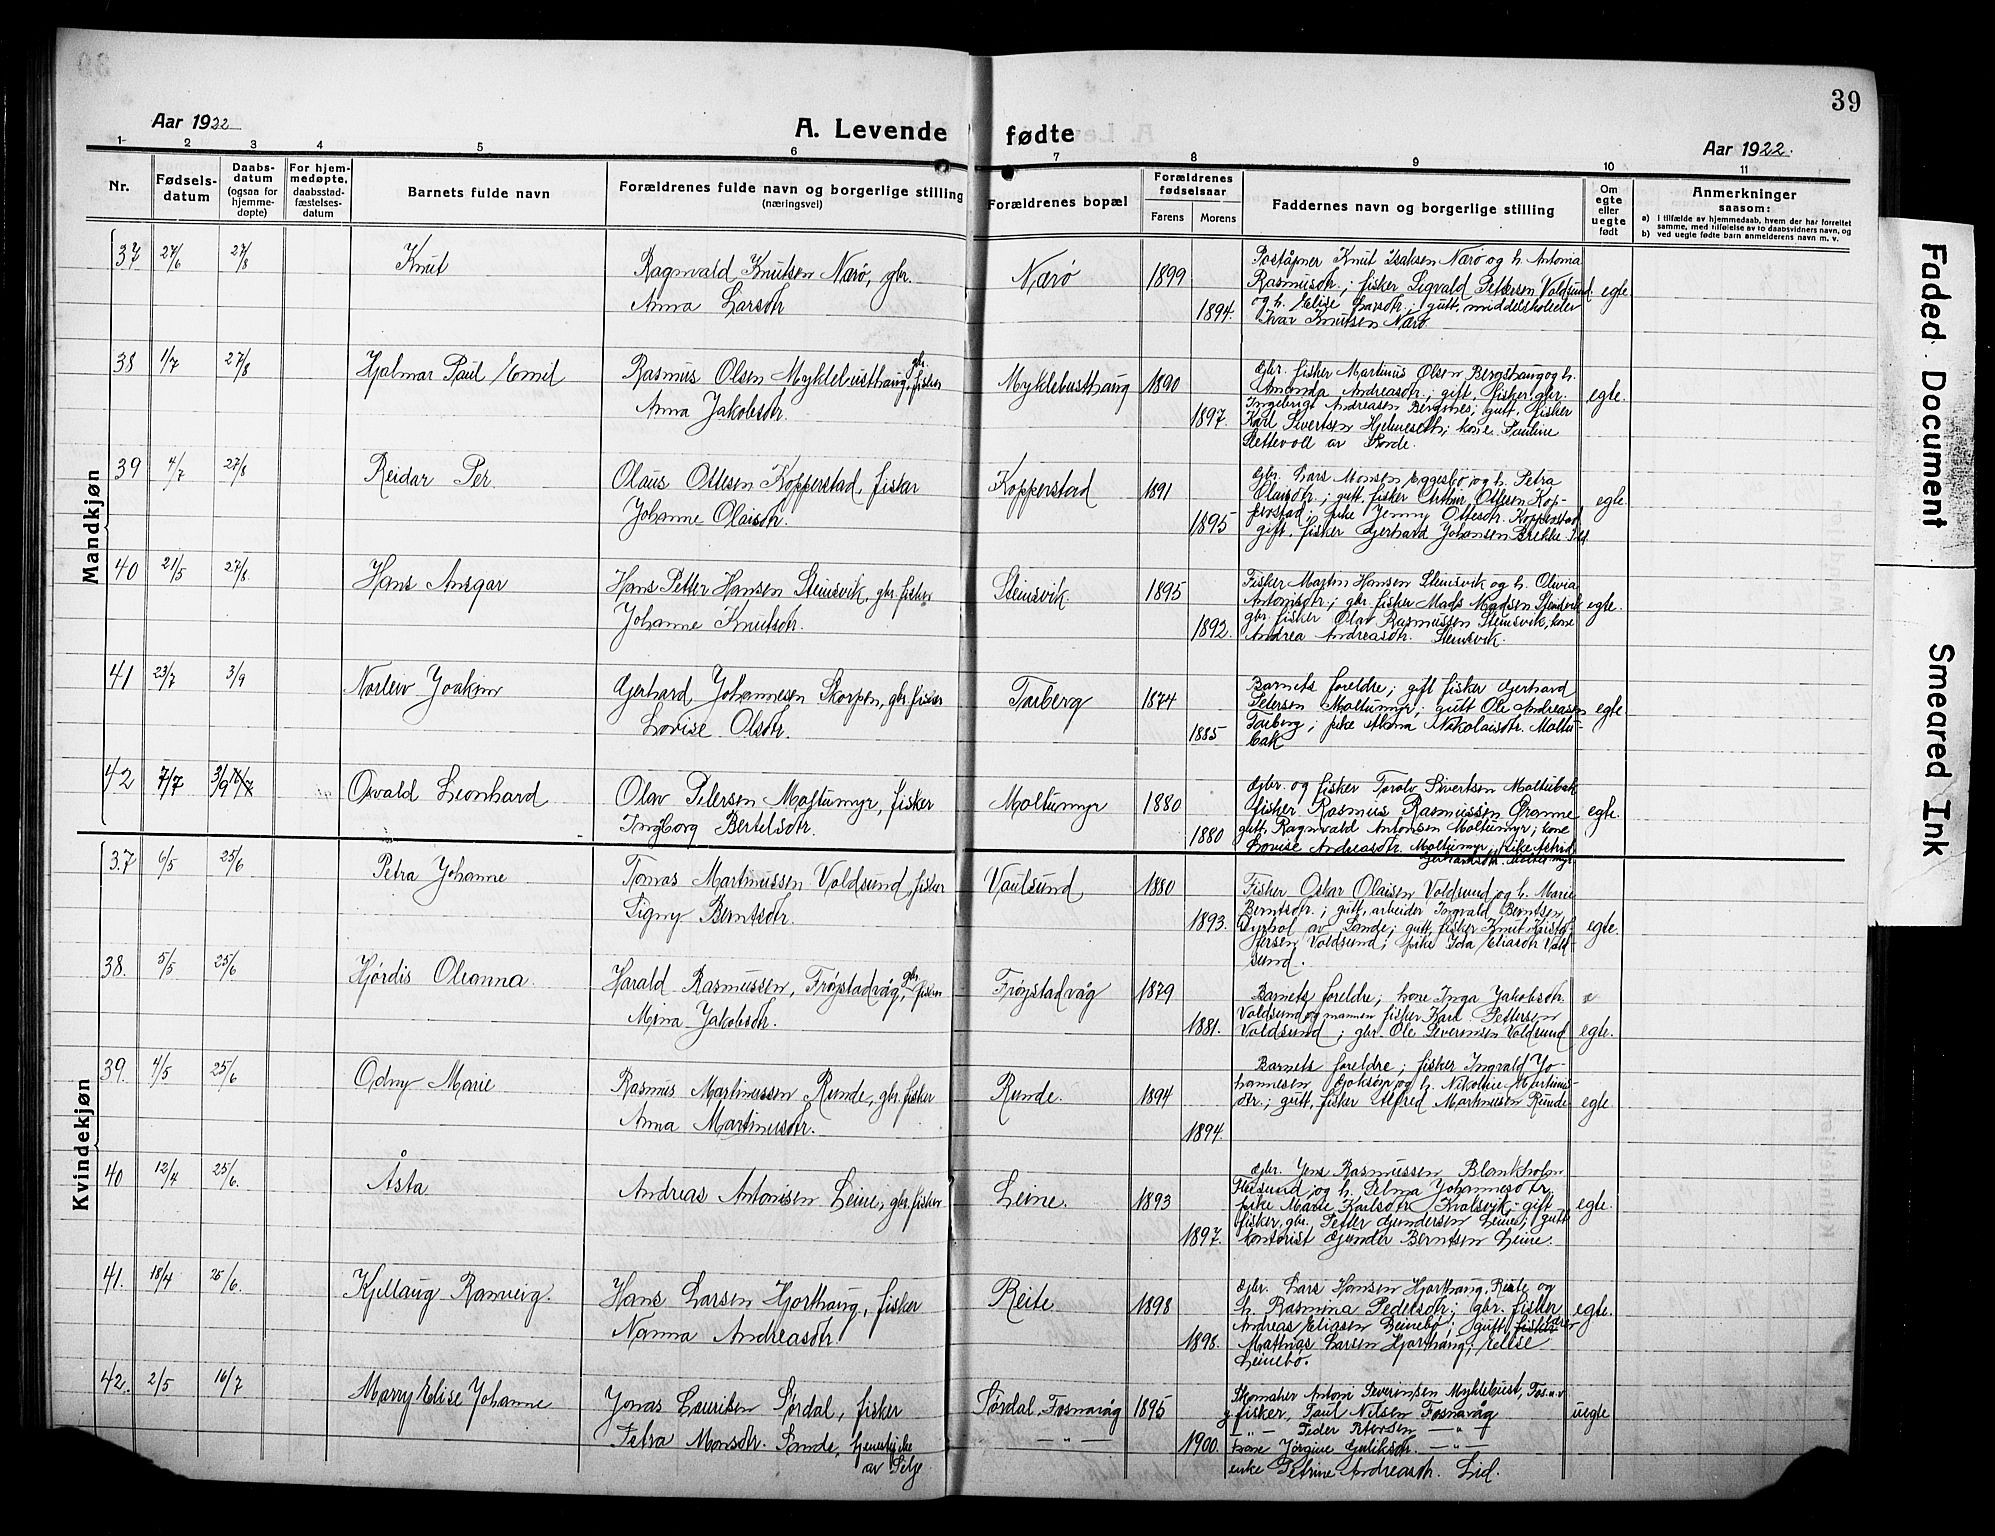 39
Aar 1922
A. Levende fødte
Aar 1922.
1 2 3 4 5 6 7 8 9 10 11
Nr.
Fødsels-
datum
Daabs-
datum
(ogsaa for
hjemme-
døpte)
For hjem-
medøpte,
daabsstad-
fæstelses-
datum
Barnets fulde navn
Forældrenes fulde navn og borgerlige stilling
(næringsvei)
Forældrenes bopæl
Forældrenes
fødselsaar
Farens Morens
Faddernes navn og borgerlige stilling
Om
egte
eller
uegte
født
Anmerkninger
saasom:
a) i tilfælde av hjemmedaab, hvem der har forrettet
samme, med tilføielse av to daabsvidners navn, og
b) ved uegte fødte barn anmelderens navn m. v.
Mandkjøn
37 27/6 27/8 Knut Ragnvald Knutsen Nærø, gbr. Nærø 1899 Poståpner Knut Isaksen Nærø og h. Antonia
Anna Larsdtr 1894. Rasmusdtr.; fisker Sigvald Pettersen Voldsund egte.
og h. Elise Larsdtr; gutt, middelskoleelev
Ivar Knutsen Nærø
38 1/7 27/8 Hjalmar Paul Emil Rasmus Olsen Myklebusthaug, gbr. fisker Myklebusthaug 1890 Gbr. fisker Martinus Olsen Bergshaug og h.
Anna Jakobsdtr. 1897. Amanda Andreasdtr.; gift, fisker, gbr. egte.
Ingebrigt Andreasen Bergsnes; gutt, fisker
Karl Sivertsen Hjelmeseth; kone Pauline
Slettevoll av Sande.
39 4/7 27/8 Reidar Per Olaus Ottesen Kopperstad, fisker Kopperstad 1891 Gbr. Lars Monsen Eggesbø og h. Petra
Johanne Olaisdtr. 1895 Olaisdtr.; gutt, fisker Arthur Ottesen Kop- egte.
perstad; pike Jenny Ottesdtr. Kopperstad
gift, fisker Gerhard Johansen Brekke
40 21/5 27/8. Hans Ansgar Hans Petter Hansen Steinsvik, gbr. fisker Steinsvik. 1895 Fisker Martin Hansen Steinsvik og h. Olivia
Johanne Knutsdtr. 1892. Antonsdtr.; gbr. fisker Mads Madsen egte.
gbr. fisker Olav Rasmussen Steinsvik, kone
Andrea Andreasdtr. Steinsvik.
41 23/7 3/9 Norleiv Joakim Gerhard Johannesen Skorpen, gbr. fisker Tarberg 1874 Barnets foreldre; gift fisker Gerhard
Lovise Olsdtr. 1885 Petersen Moltumyr; gutt Ole Andreasen egte
Tarberg; pike Anna Nikolaisdtr. Moltu-
bak
42 7/7 3/9 16/7 Osvald Leonhard Olav Petersen Moltumyr, fisker Moltumyr 1880 Gbr. og fisker Torolv Sivertsen Moltubak
Ingborg Bertelsdtr. 1880 fisker Rasmus Rasmussen Grønne egte.
gutt, Ragnvald Antonsen Moltumyr; kone
Lovise Andreasdtr. Moltumyr, pike Astrid
Gerhardsdtr. Moltumyr
Kvindekjøn
37 6/5 25/6 Petra Johanne Tomas Martinussen Voldsund, fisker Vaulsund 1880 Fisker Oskar Olaisen Voldsund og h. Marie
Signy Berntsdtr. 1893. Berntsdtr.; gutt, arbeider Ingvald Berntsen egte.
Dyrhol av Sande; gutt, fisker Knut Kristof-
fersen Voldsund; pike Ida Eliasdtr Vold-
sund.
38. 5/5 25/6 Hjørdis Oleanna. Harald Rasmussen, Frøystadvåg, gbr. fisker Frøystadvåg 1879 Barnets foreldre; kone Inga Jakobsdtr.
Mina Jakobsdtr. 1881. Voldsund og mannen fisker Karl Pettersen egte.
Voldsund; gbr. Ole Severinsen Voldsund
39. 4/5 25/6 Odny Marie Rasmus Martinussen Runde, gbr. fisker Runde. 1894 Barnets foreldre; fisker Ingvald Jo-
Anna Martinusdtr. 1894. hannesen Goksøyr og h. Nikoline Martinus-
dtr.; gutt, fisker Alfred Martinussen Runde egte
40 12/4 25/6. Åsta Andreas Antonsen Leine, gbr. fisker Leine. 1893 Gbr. Jens Rasmussen Blankholm
1897. Flusund og h. Selma Johannesdtr. egte.
pike Marie Karlsdtr Kvalsvik; gift
fisker, gbr. Petter Gundersen Leine; gutt
kontorist Gunder Berntsen Leine.
41. 18/4 25/6. Kjellaug Ranveig. Hans Larsen Hjorthaug, fisker Reite 1898 Gbr. Lars Hansen Hjorthaug, Reite og
Nanna Andreasdtr 1898. h. Rasmina Pedersdtr; gbr. fisker egte.
Andreas Eliasen Leinebø; gutt, fisker
Mathias Larsen Hjorthaug; Elise
Leinebø.
42. 2/5 16/7 Marry Elise Johanne Jonas Lauritsen Sørdal, fisker Sørdal, Fosnavåg 1895 Skomaker Anton Severinsen Myklebust, Fosnav
Petra Monsdtr. Sande, tjenestpike — „ — 1900. fisker, Paul Nilsen Fosnavåg uegte
av Selje — „ — Peder Petersen — „ —
kone Jørgine — „ —
enke Petrine Andreasdtr. Lid.
Faded Document
Smeared Ink